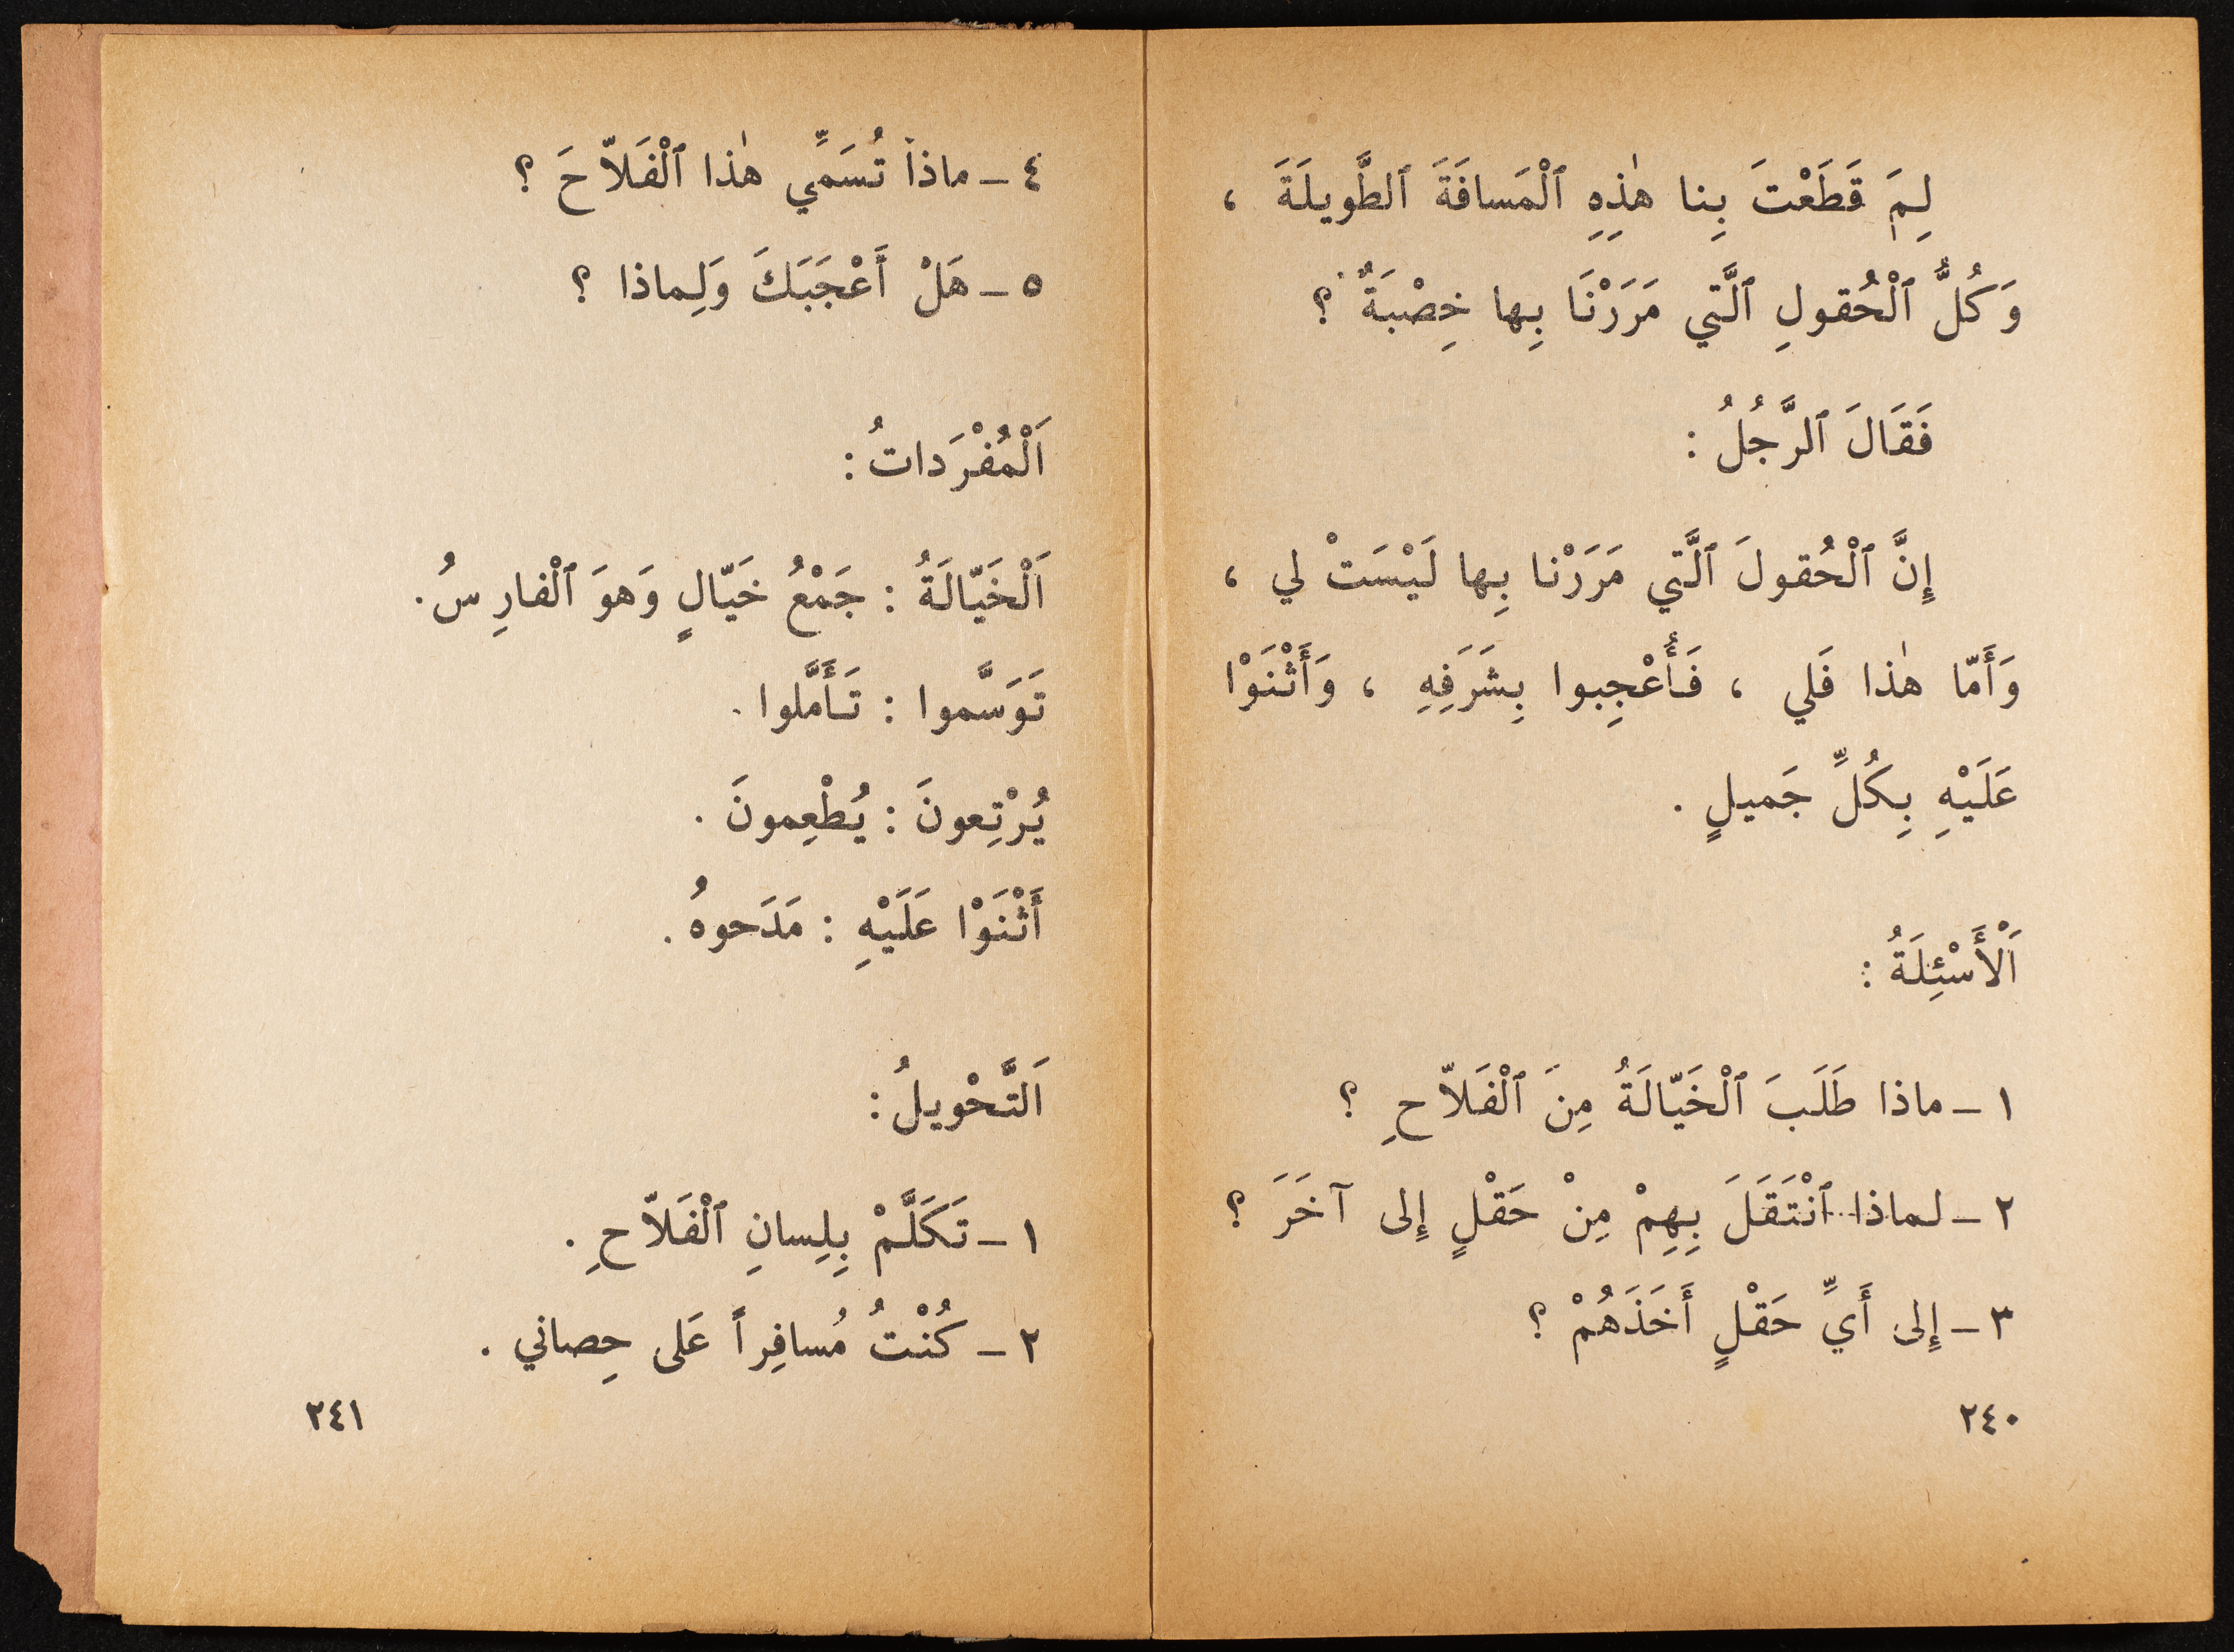 لِمَ قَطَعْتَ بِنا هٰذِهِ ٱلْمَسافَةَ ٱلطَّويلَةَ ،
وَكُلُّ ٱلْحُقولِ ٱلَّتي مَرَرْنَا بِها خِصْبَةٌ ؟
فَقَالَ ٱلرَّجُلُ :
إِنَّ ٱلْحُقولَ ٱلَّتِي مَرَرْنا بِها لَيْسَتْ لي ،
وَأَمّا هٰذا فَلي ، فَأُعْجِبوا بِشَرَفِهِ ، وَأَثْنَوْا
عَلَيْهِ بِكُلِّ جَميلٍ .
اَلْأَسْئِلَةُ :
١ - ماذا طَلَبَ ٱلْخَيّالَةُ مِنَ ٱلْفَلاّحِ ؟
٢ - لماذا ٱنْتَقَلَ بِهِمْ مِنْ حَقْلٍ إِلى آخَرَ ؟
٣ - إِلى أَيِّ حَقْلٍ أَخَذَهُمْ ؟
٢٤٠
٤ - ماذا تُسَمِّي هٰذا ٱلْفَلاّحَ ؟
٥ - هَلْ أَعْجَبَكَ وَلِماذا ؟
اَلْمُفْرَداتُ :
اَلْخَيّالَةُ : جَمْعُ خَيّالٍ وَهوَ ٱلْفارِسُ .
تَوَسَّموا : تَأَمَّلوا .
يُرْتِعونَ : يُطْعِمونَ .
أَثْنَوْا عَلَيْهِ : مَدَحوهُ .
اَلتَّحْويلُ :
١ - تَكَلَّمْ بِلِسانِ ٱلْفَلاّحِ .
٢ - كُنْتُ مُسافِراً عَلى حِصاني .
٢٤١